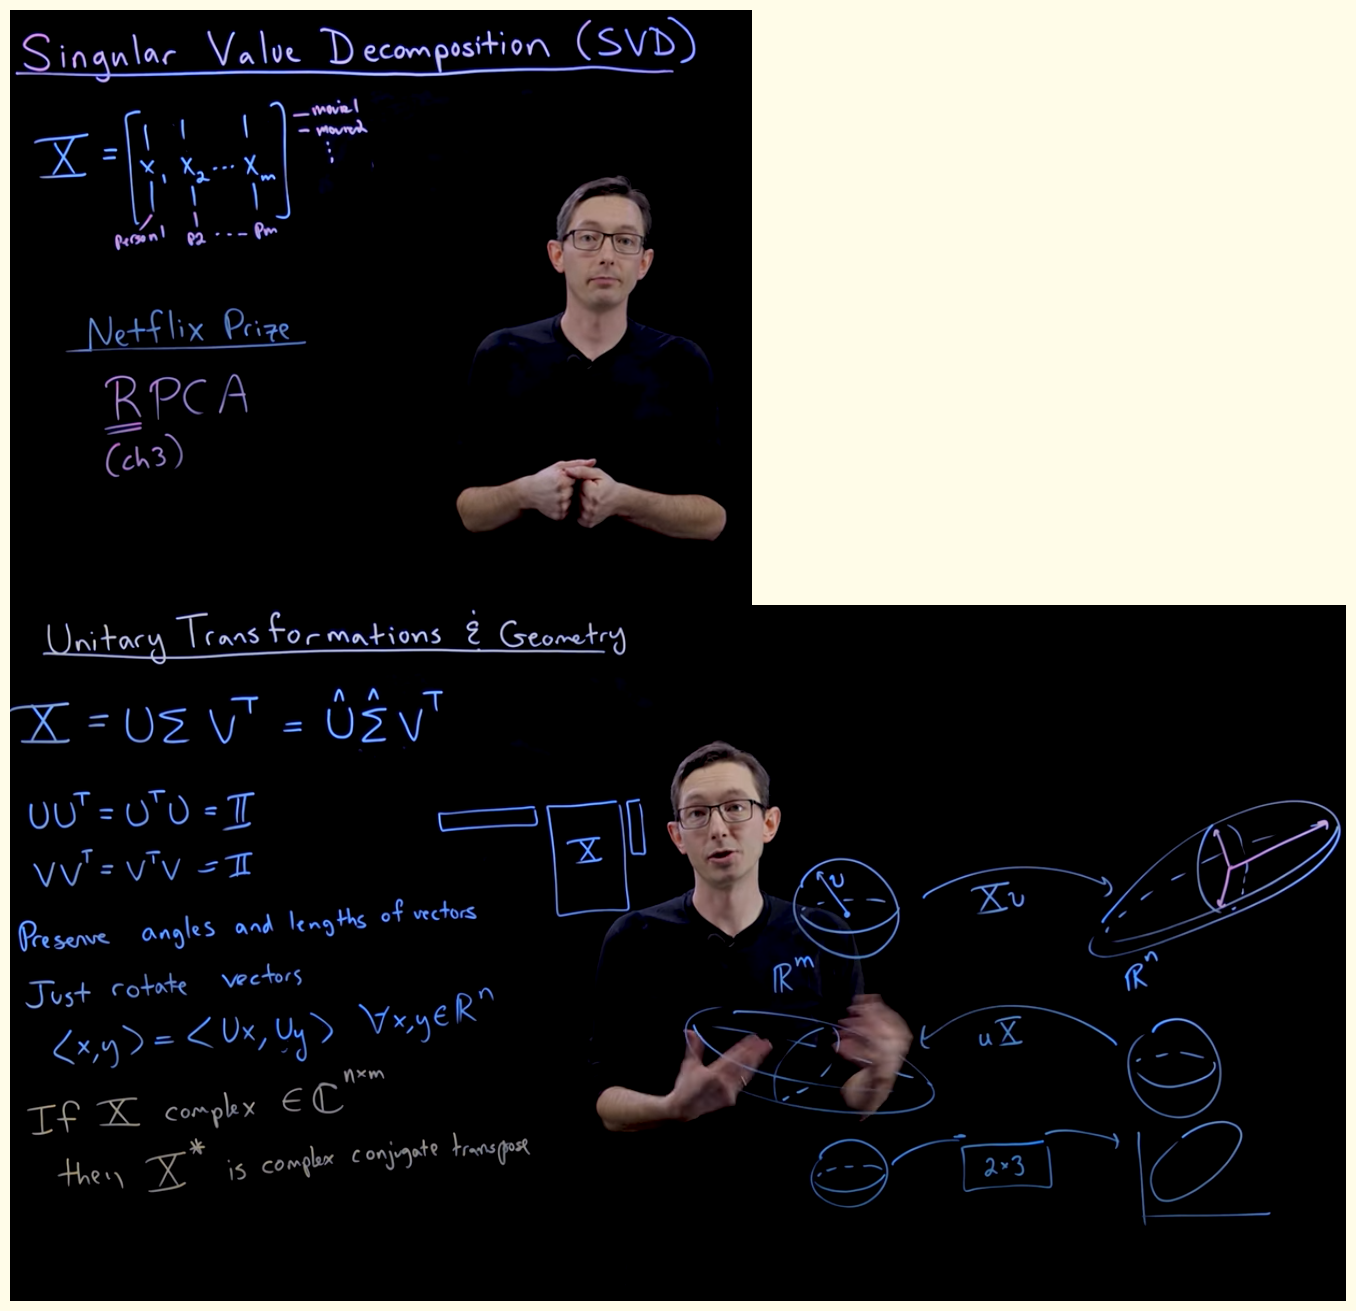 Singular Value Decomposition (SVD)
X = [ x1 x2 ... xm ]
movie1
movie2
⋮
person1 p2 ---- pm
Netflix Prize
RPCA
(ch3)
Unitary Transformations & Geometry
X = UΣVᵀ = ÛΣ̂Vᵀ
UUᵀ = UᵀU = I
VVᵀ = VᵀV = I
X
Preserve angles and lengths of vectors
Just rotate vectors
<x,y> = <Ux,Uy> ∀x,y∈ℝⁿ
If X complex ∈ ℂⁿˣᵐ
then X* is complex conjugate transpose
v
Xv
ℝᵐ
ℝⁿ
uX
2×3